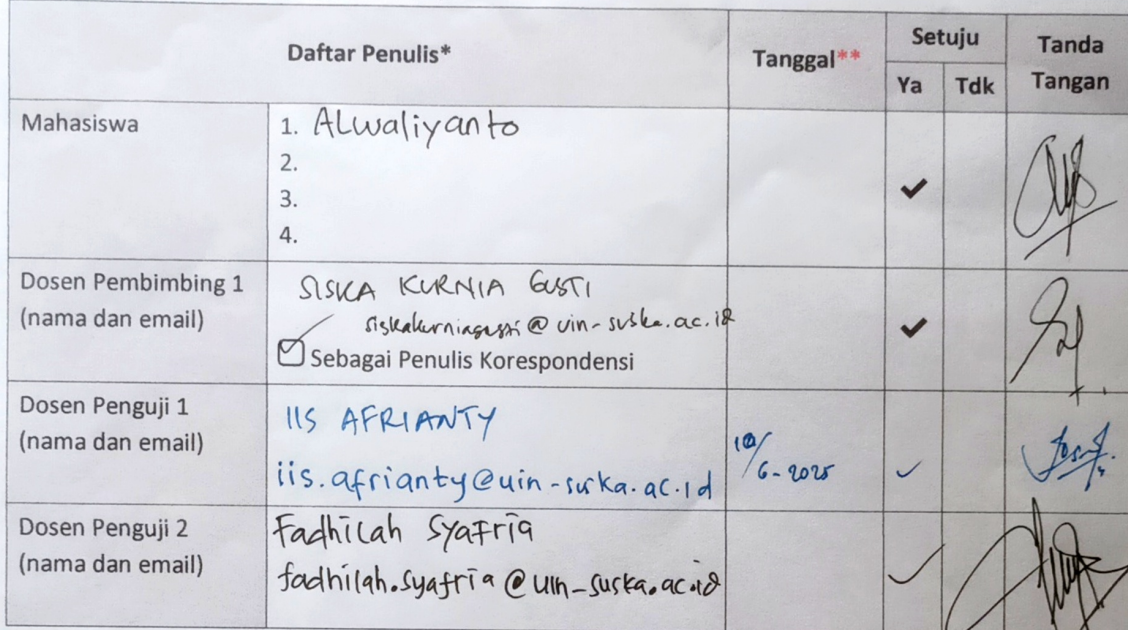 Daftar Penulis*
Tanggal**
Setuju
Tanda
Tangan
Ya
Tdk
Mahasiswa
1. ALwaliyanto
2.
3.
4.
Dosen Pembimbing 1
(nama dan email)
SISKA KURNIA GUSTI
siskakurniagusti@uin-suska.ac.id
Sebagai Penulis Korespondensi
Dosen Penguji 1
(nama dan email)
IIS AFRIANTY
iis.afrianty@uin-suska.ac.id
/6-2025
Dosen Penguji 2
(nama dan email)
Fadhilah Syafria
fadhilah.syafria@uin-suska.ac.id